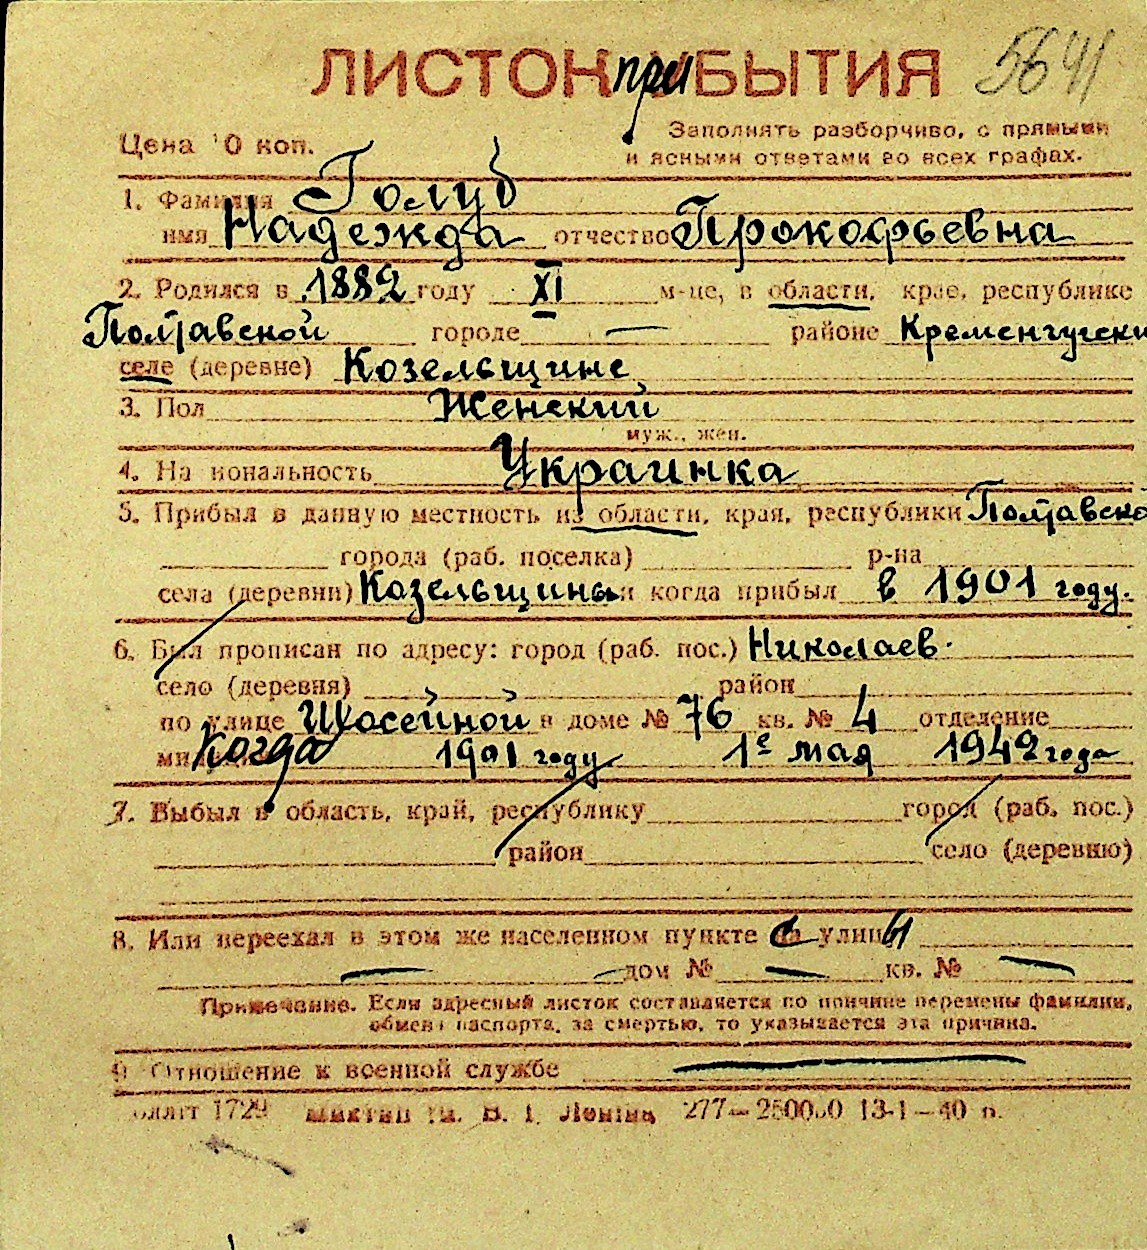 ЛИСТОК прибЫТИЯ 5641
Цена 10 коп.
Заполнять разборчиво, с прямыми
и ясными ответами во всех графах.
1. Фамилия Голуб
имя Надежда отчество Прокофьевна
2. Родился в 1882 году XI м-це, в области, крае, республике
Полтавской городе — районе Кременчугском
селе (деревне) Козельщине
3. Пол Женский
муж., жен.
4. Национальность Украинка
5. Прибыл в данную местность из области, края, республики Полтавской
города (раб. поселка) р-на
села (деревни) Козельщины и когда прибыл в 1901 году.
6. Был прописан по адресу: город (раб. пос.) Николаев.
село (деревня) район
по улице Шосейной в доме № 76 кв. № 4 отделение
Когда 1901 году 1е мая 1942 года
7. Выбыл в область, край, республику город (раб. пос.)
район село (деревню)
8. Или переехал в этом же населенном пункте с улицы
— — дом № — кв. № —
Примечание. Если адресный листок составляется по причине перемены фамилии,
обмена паспорта, за смертью, то указывается эта причина.
9. Отношение к военной службе —
1729 им. В. І. Леніна 277—250000 13-1—40 п.